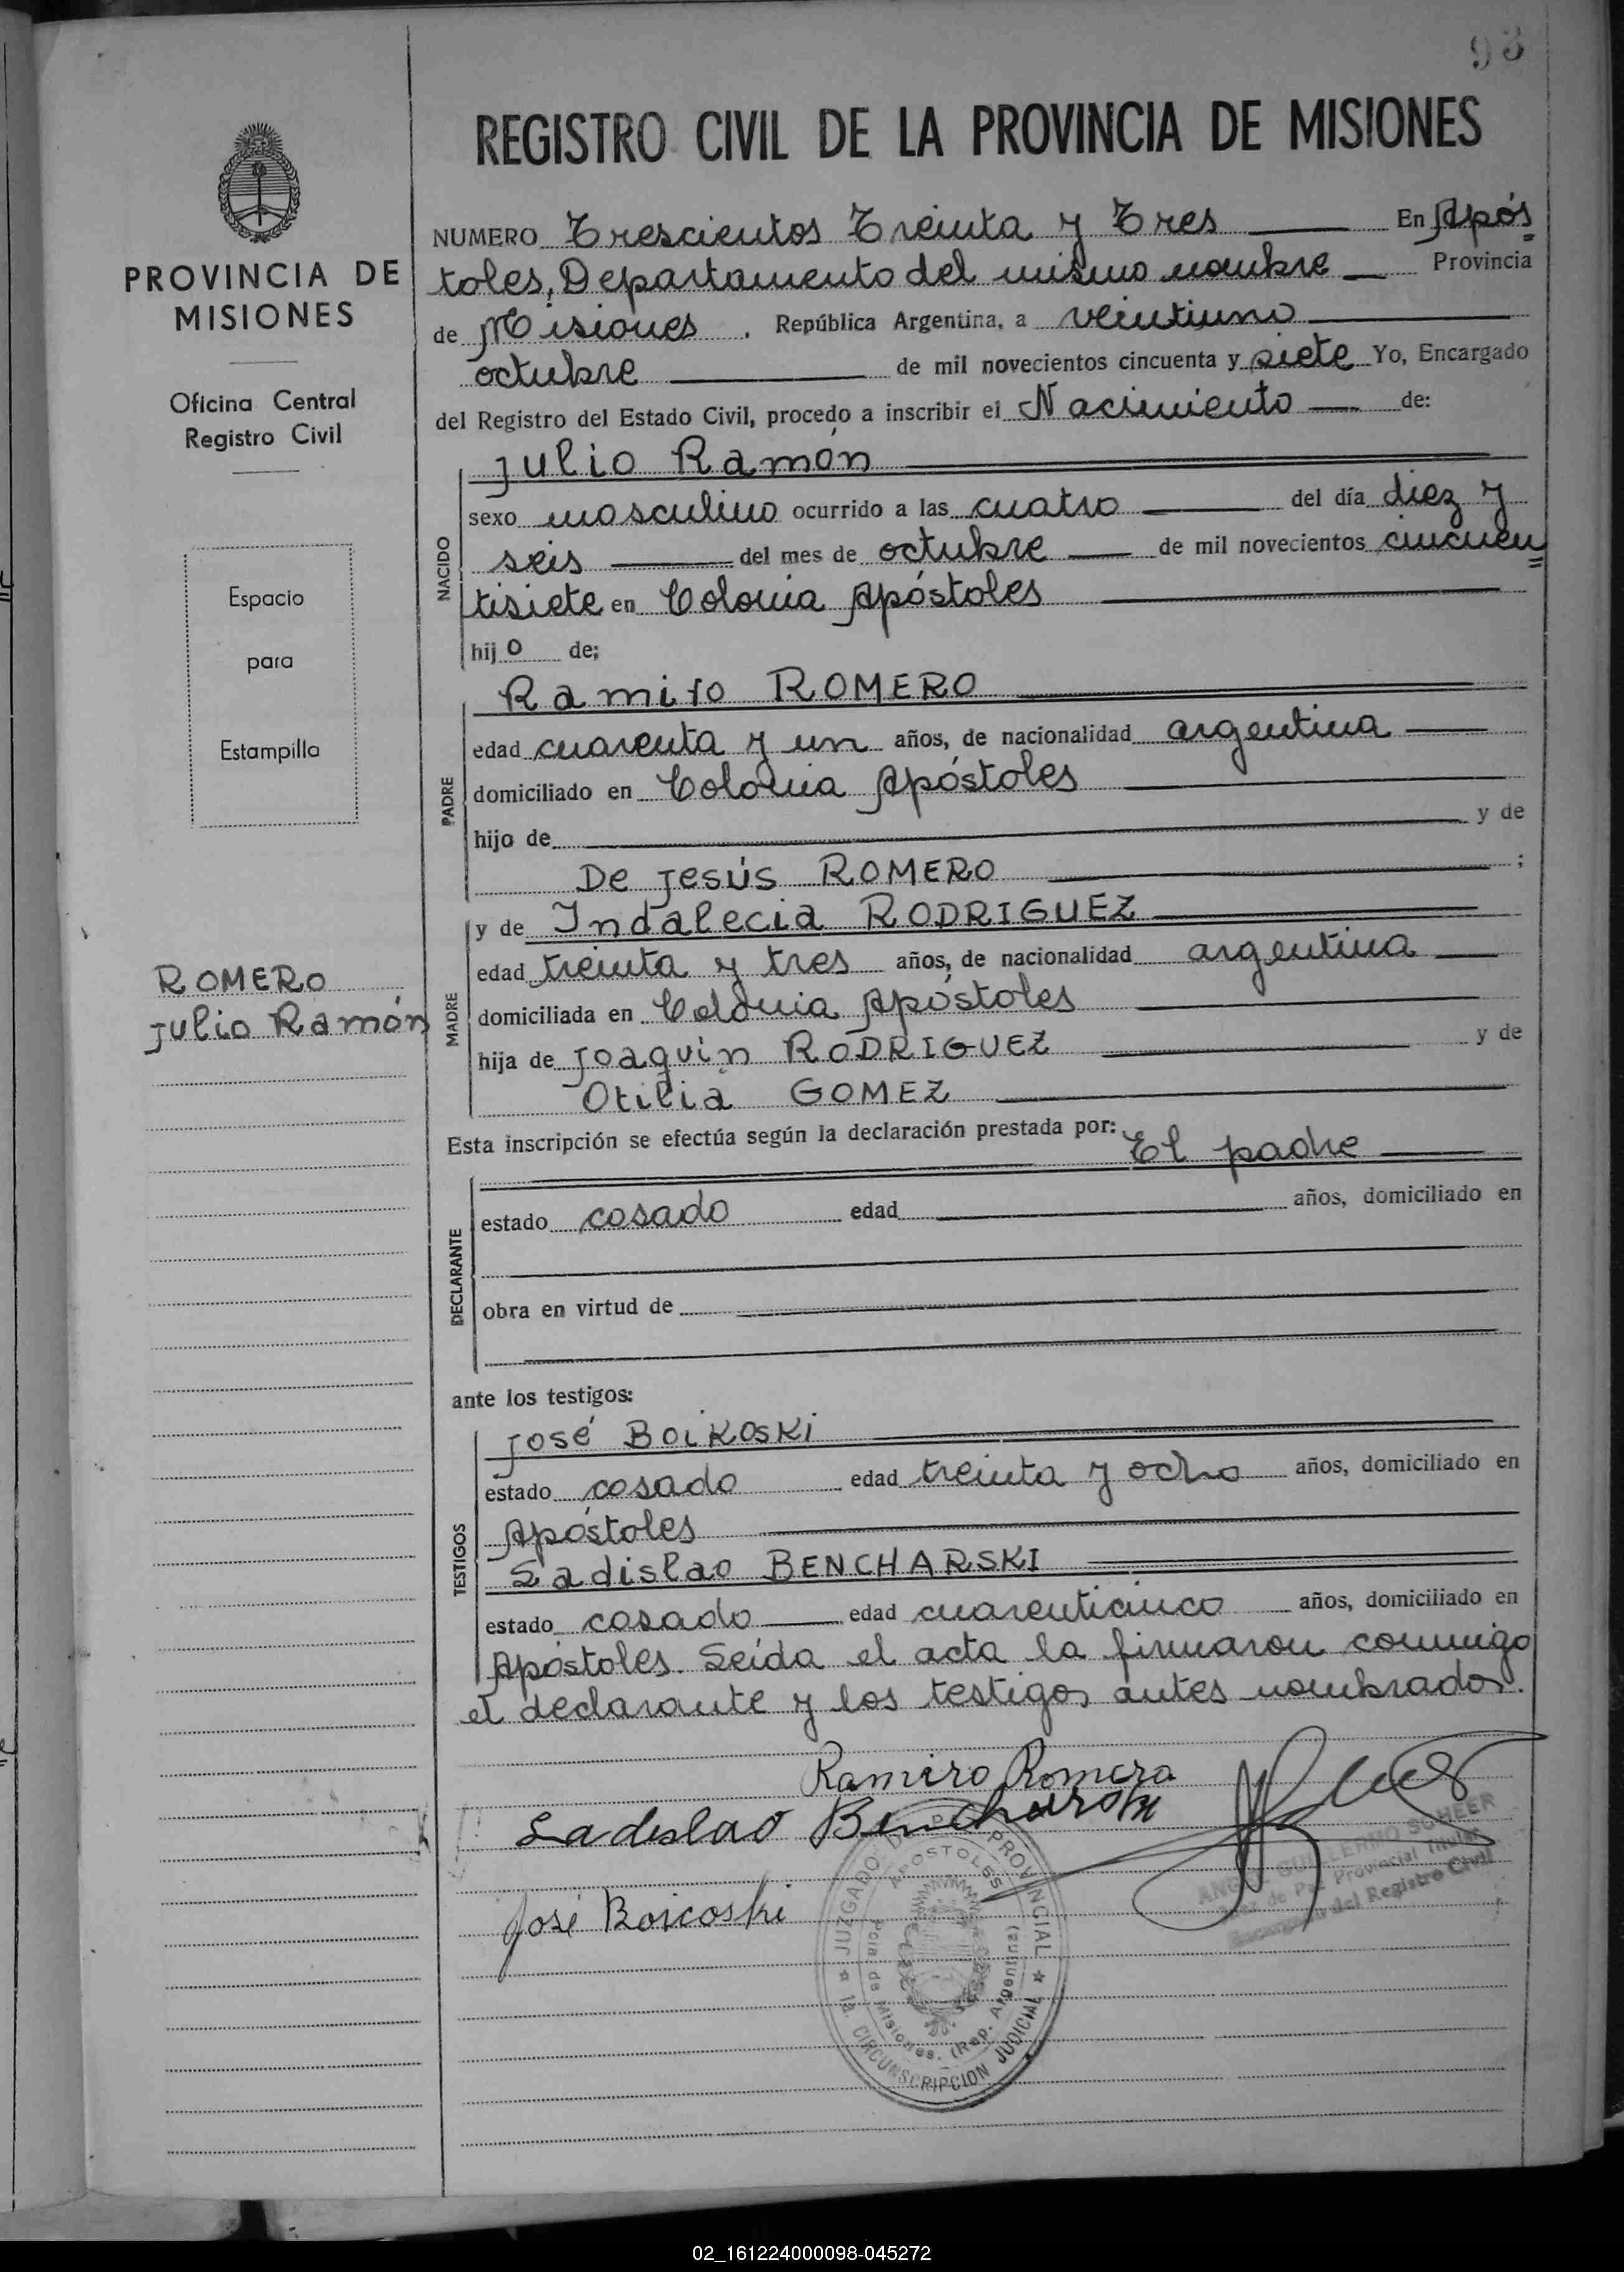 93
REGISTRO CIVIL DE LA PROVINCIA DE MISIONES
PROVINCIA DE
MISIONES
Oficina Central
Registro Civil
Espacio
para
Estampilla
ROMERO
Julio Ramón
NUMERO Trescientos Treinta y Tres En Após
toles, Departamento del mismo nombre Provincia
de Misiones, República Argentina, a veintiuno
octubre de mil novecientos cincuenta y siete Yo, Encargado
del Registro del Estado Civil, procedo a inscribir el Nacimiento de:
NACIDO
Julio Ramón
sexo masculino ocurrido a las cuatro del día diez y
seis del mes de octubre de mil novecientos cincuen
tisiete en Colonia Apóstoles
hijo de;
PADRE
Ramiro ROMERO
edad cuarenta y un años, de nacionalidad argentina
domiciliado en Colonia Apóstoles
hijo de y de
De Jesús ROMERO ;
MADRE
y de Indalecia RODRIGUEZ
edad treinta y tres años, de nacionalidad argentina
domiciliada en Colonia Apóstoles
hija de Joaquin RODRIGUEZ y de
Otilia GOMEZ
Esta inscripción se efectúa según la declaración prestada por: El padre
DECLARANTE
estado casado edad años, domiciliado en
obra en virtud de
ante los testigos:
TESTIGOS
José BOIKOSKI
estado casado edad treinta y ocho años, domiciliado en
Apóstoles
Ladislao BENCHARSKI
estado casado edad cuarenticinco años, domiciliado en
Apóstoles. Leída el acta la firmaron conmigo
el declarante y los testigos antes nombrados.
Ramiro Romero
Ladislao Bencharski
José Boicoski
JUZGADO DE PAZ PROVINCIAL
APOSTOLES
Pcia. de Misiones. (Rep. Argentina)
1a. CIRCUNSCRIPCION JUDICIAL
GUILLERMO SCHEER
Juez de Paz Provincial Titular
Encargado del Registro Civil
02_161224000098-045272